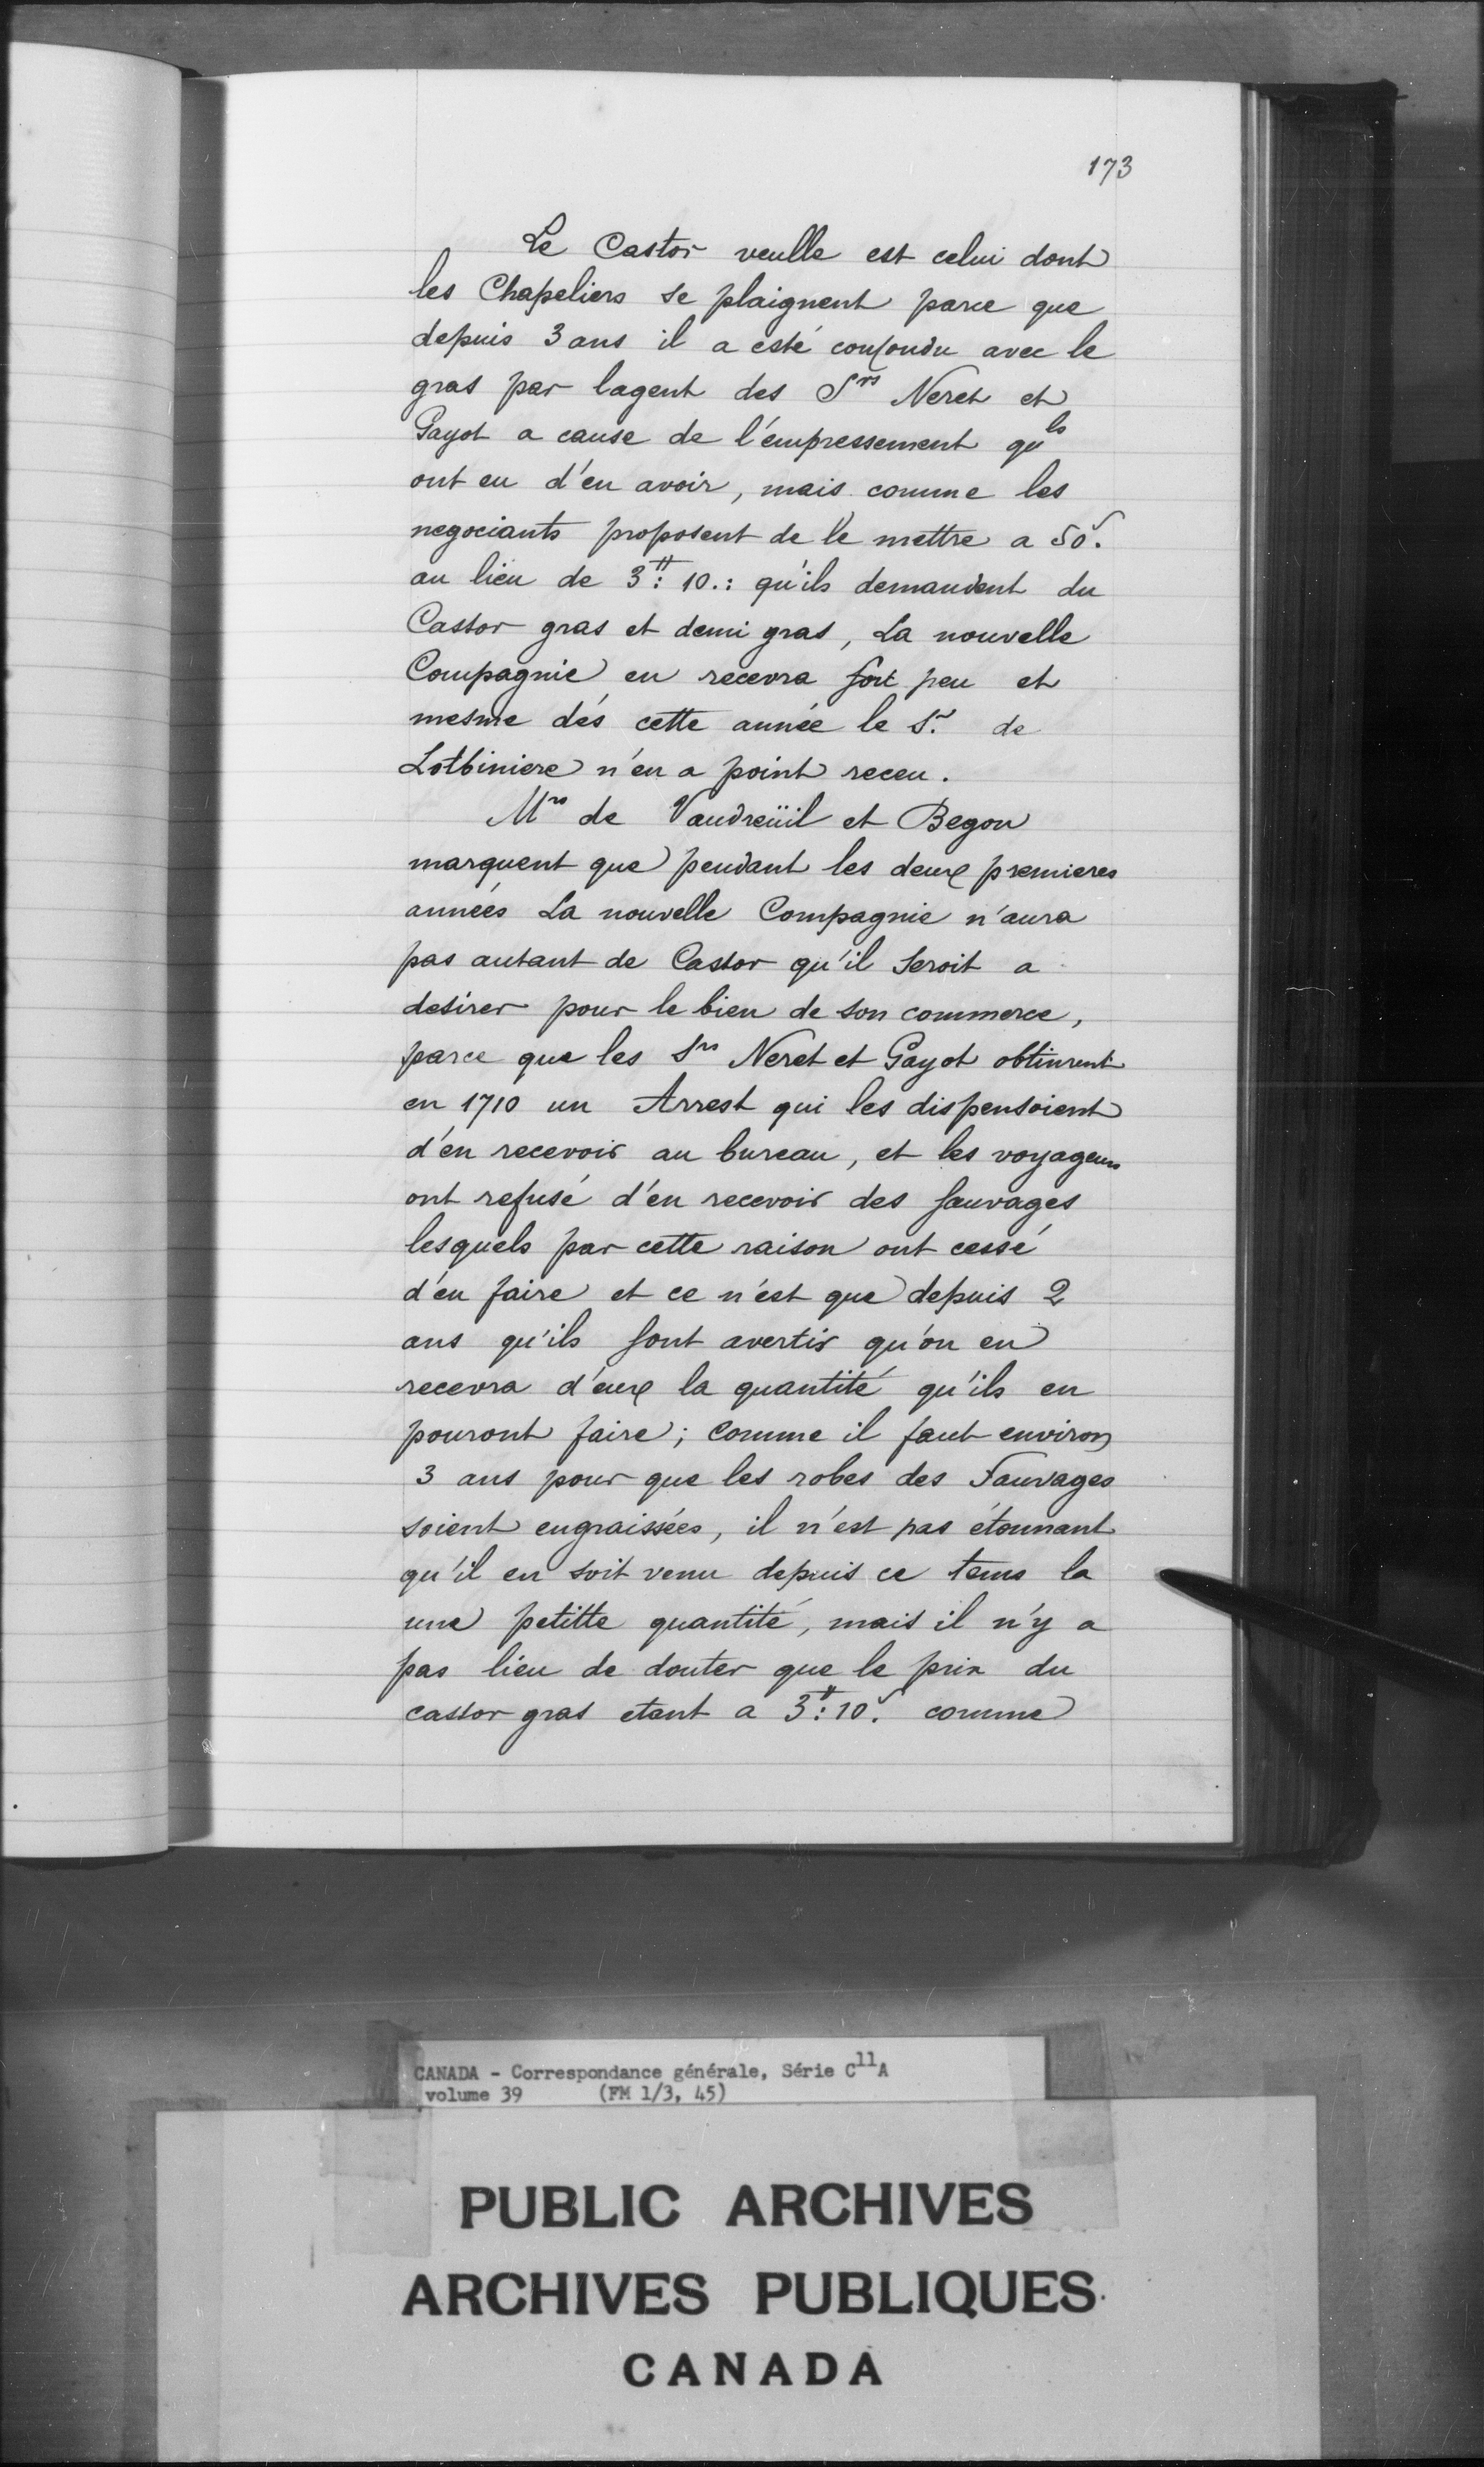 173
Le Castor veulle est celui dont
les Chapeliers se plaignent parce que
depuis 3 ans il a esté confondu avec le
gras par lagent des Srs Neret et
Gayot a cause de l'empressement quls
ont eu d'en avoir, mais comme les
negociants proposent de le mettre a 50s.
au lieu de 3tt: 10.: qu'ils demandent du
Castor gras et demi gras, La nouvelle
Compagnie en recevra fort peu et
mesme dés cette année le Sr. de
Lotbiniere n'en a point receu.
Mrs de Vaudreüil et Begon
marquent que pendant les deux premieres
années La nouvelle Compagnie n'aura
pas autant de Castor qu'il seroit a
desirer pour le bien de son commerce,
parce que les Srs Neret et Gayot obtinrent
en 1710 un Arrest qui les dispensoient
d'en recevoir au bureau, et les voyageurs
ont refusé d'en recevoir des sauvages
lesquels par cette raison ont cessé
d'en faire et ce n'est que depuis 2
ans qu'ils sont avertis qu'on en
recevra d'eux la quantité qu'ils en
pouront faire; comme il faut environ
3 ans pour que les robes des Sauvages
soient engraissées, il n'est pas étonnant
qu'il en soit venu depuis ce tems la
une petitte quantité, mais il n'y a
pas lieu de douter que le prix du
castor gras etant a 3tt: 10s. comme
CANADA - Correspondance générale, Série C11A
volume 39 (FM 1/3, 45)
PUBLIC ARCHIVES
ARCHIVES PUBLIQUES
CANADA